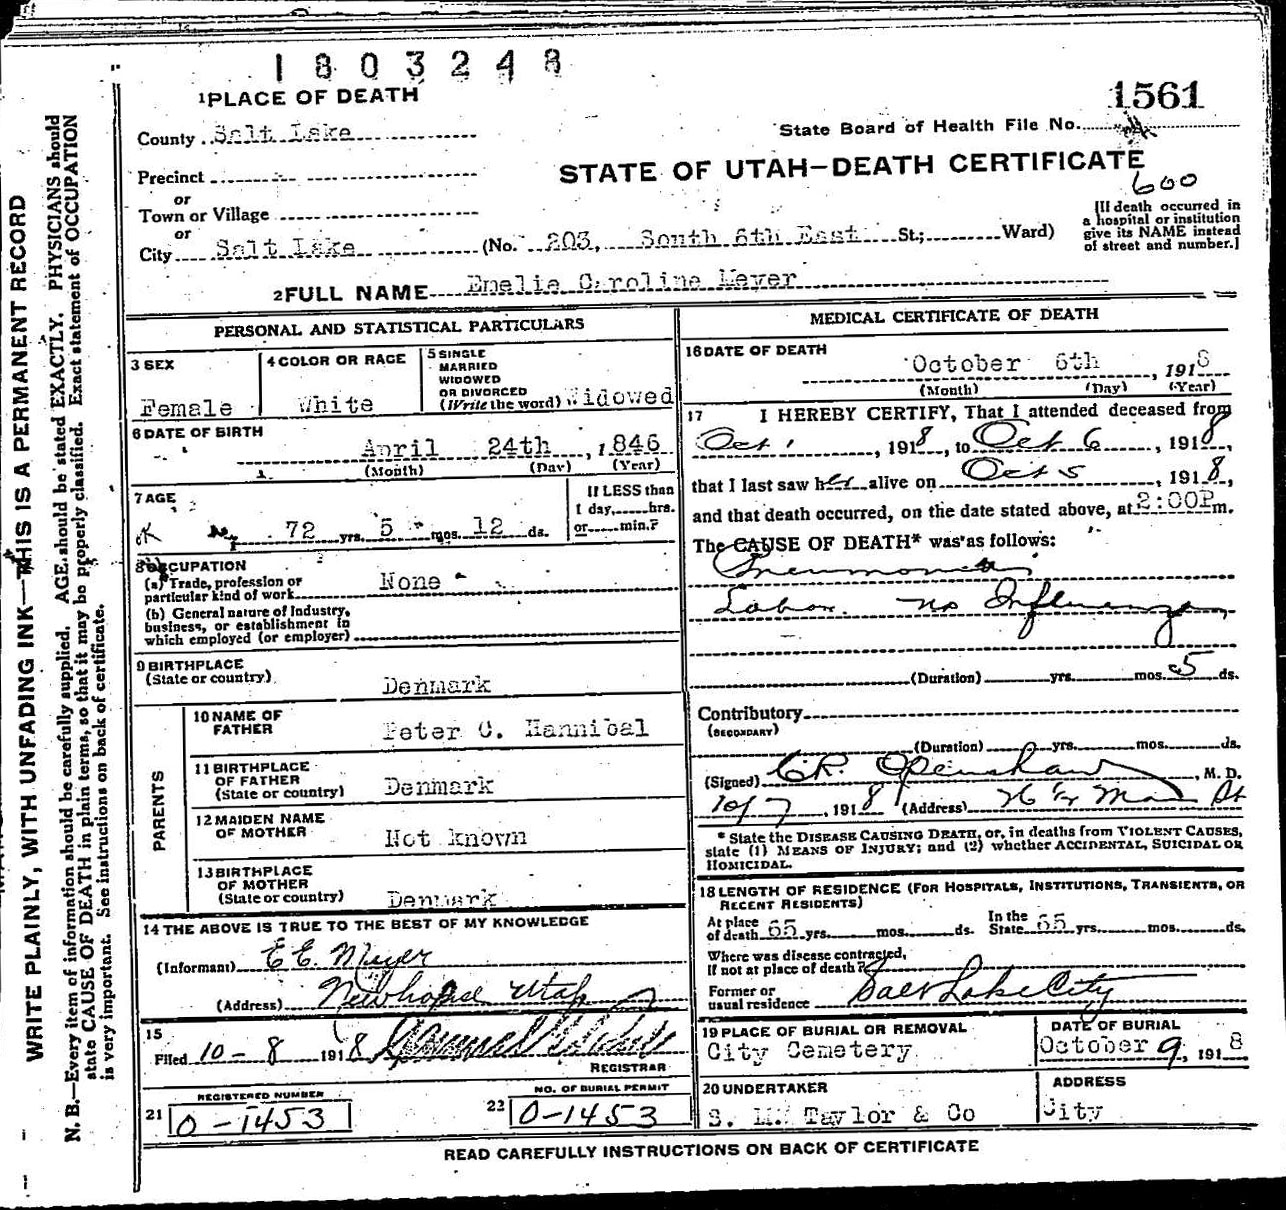 1803248
1561
1 PLACE OF DEATH
County Salt Lake
State Board of Health File No.
Precinct
STATE OF UTAH—DEATH CERTIFICATE
600
or
Town or Village
or
City Salt Lake (No. 203, South 6th East St.; Ward)
[If death occurred in
a hospital or institution
give its NAME instead
of street and number.]
2 FULL NAME Emelie Caroline Meyer
PERSONAL AND STATISTICAL PARTICULARS
3 SEX
Female
4 COLOR OR RACE
White
5 SINGLE
MARRIED
WIDOWED
OR DIVORCED
(Write the word) Widowed
6 DATE OF BIRTH
April 24th, 1846
(Month) (Day) (Year)
7 AGE
72 yrs. 5 mos. 12 ds.
If LESS than
1 day,......hrs.
or......min.?
8 OCCUPATION
(a) Trade, profession or
particular kind of work None
(b) General nature of Industry,
business, or establishment in
which employed (or employer)
9 BIRTHPLACE
(State or country) Denmark
PARENTS
10 NAME OF
FATHER Peter C. Hannibal
11 BIRTHPLACE
OF FATHER
(State or country) Denmark
12 MAIDEN NAME
OF MOTHER Not known
13 BIRTHPLACE
OF MOTHER
(State or country) Denmark
14 THE ABOVE IS TRUE TO THE BEST OF MY KNOWLEDGE
(Informant) E E. Meyer
(Address) Newhouse Utah
15
Filed 10-8 1918
REGISTRAR
REGISTERED NUMBER
21 0-1453
NO. OF BURIAL PERMIT
22 0-1453
MEDICAL CERTIFICATE OF DEATH
16 DATE OF DEATH
October 6th, 1918
(Month) (Day) (Year)
17 I HEREBY CERTIFY, That I attended deceased from
Oct 1, 1918, to Oct 6, 1918,
that I last saw her alive on Oct 5, 1918,
and that death occurred, on the date stated above, at 2:00P m.
The CAUSE OF DEATH* was as follows:
Pneumonia
Lobar. no Influenza
(Duration) yrs. mos. 5 ds.
Contributory
(SECONDARY)
(Duration) yrs. mos. ds.
(Signed) C.R. Openshaw, M. D.
10/7, 1918 (Address) Main St
* State the DISEASE CAUSING DEATH, or, in deaths from VIOLENT CAUSES,
state (1) MEANS OF INJURY; and (2) whether ACCIDENTAL, SUICIDAL OR
HOMICIDAL.
18 LENGTH OF RESIDENCE (FOR HOSPITALS, INSTITUTIONS, TRANSIENTS, OR
RECENT RESIDENTS)
At place
of death 65 yrs. mos. ds.
In the
State 65 yrs. mos. ds.
Where was disease contracted,
If not at place of death?
Former or
usual residence Salt Lake City
19 PLACE OF BURIAL OR REMOVAL
City Cemetery
DATE OF BURIAL
October 9, 1918
20 UNDERTAKER
S. M. Taylor & Co
ADDRESS
City
READ CAREFULLY INSTRUCTIONS ON BACK OF CERTIFICATE
WRITE PLAINLY, WITH UNFADING INK—THIS IS A PERMANENT RECORD
N. B.—Every item of information should be carefully supplied. AGE should be stated EXACTLY. PHYSICIANS should
state CAUSE OF DEATH in plain terms, so that it may be properly classified. Exact statement of OCCUPATION
is very important. See instructions on back of certificate.